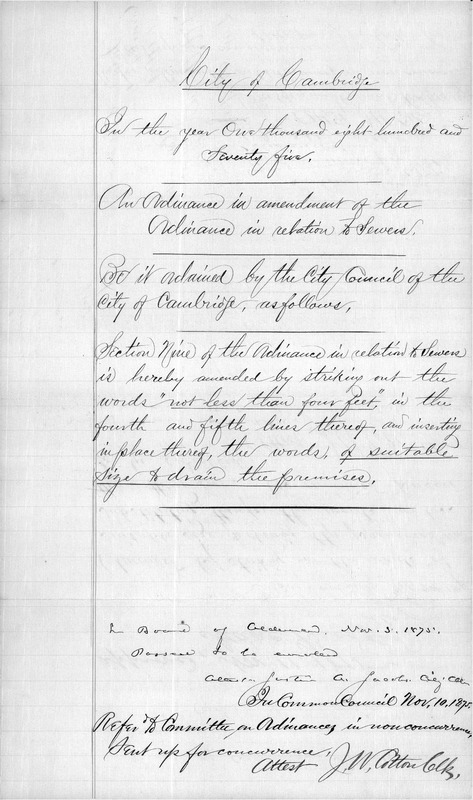 City of Cambridge
In the year One thousand eight hundred and
Seventy five.
An Ordinance in amendment of the
Ordinance in relation to Sewers.
Be it ordained by the City Council of the
City of Cambridge, as follows,
Section Nine of the Ordinance in relation to Sewers
is hereby amended by striking out the
words "not less than four feet," in the
fourth and fifth lines thereof, and inserting
in place thereof, the words, of suitable
size to drain the premises.
In Board of Aldermen, Nov. 3. 1875.
Passed to be enrolled
Attest. Justin A. Jacobs. City Clerk
In Common Council Nov, 10, 1875.
Refer'd to Committee on Ordinances, in nonconcurrence,
Sent up for concurrence,
Attest J. W. Cotton Clk,